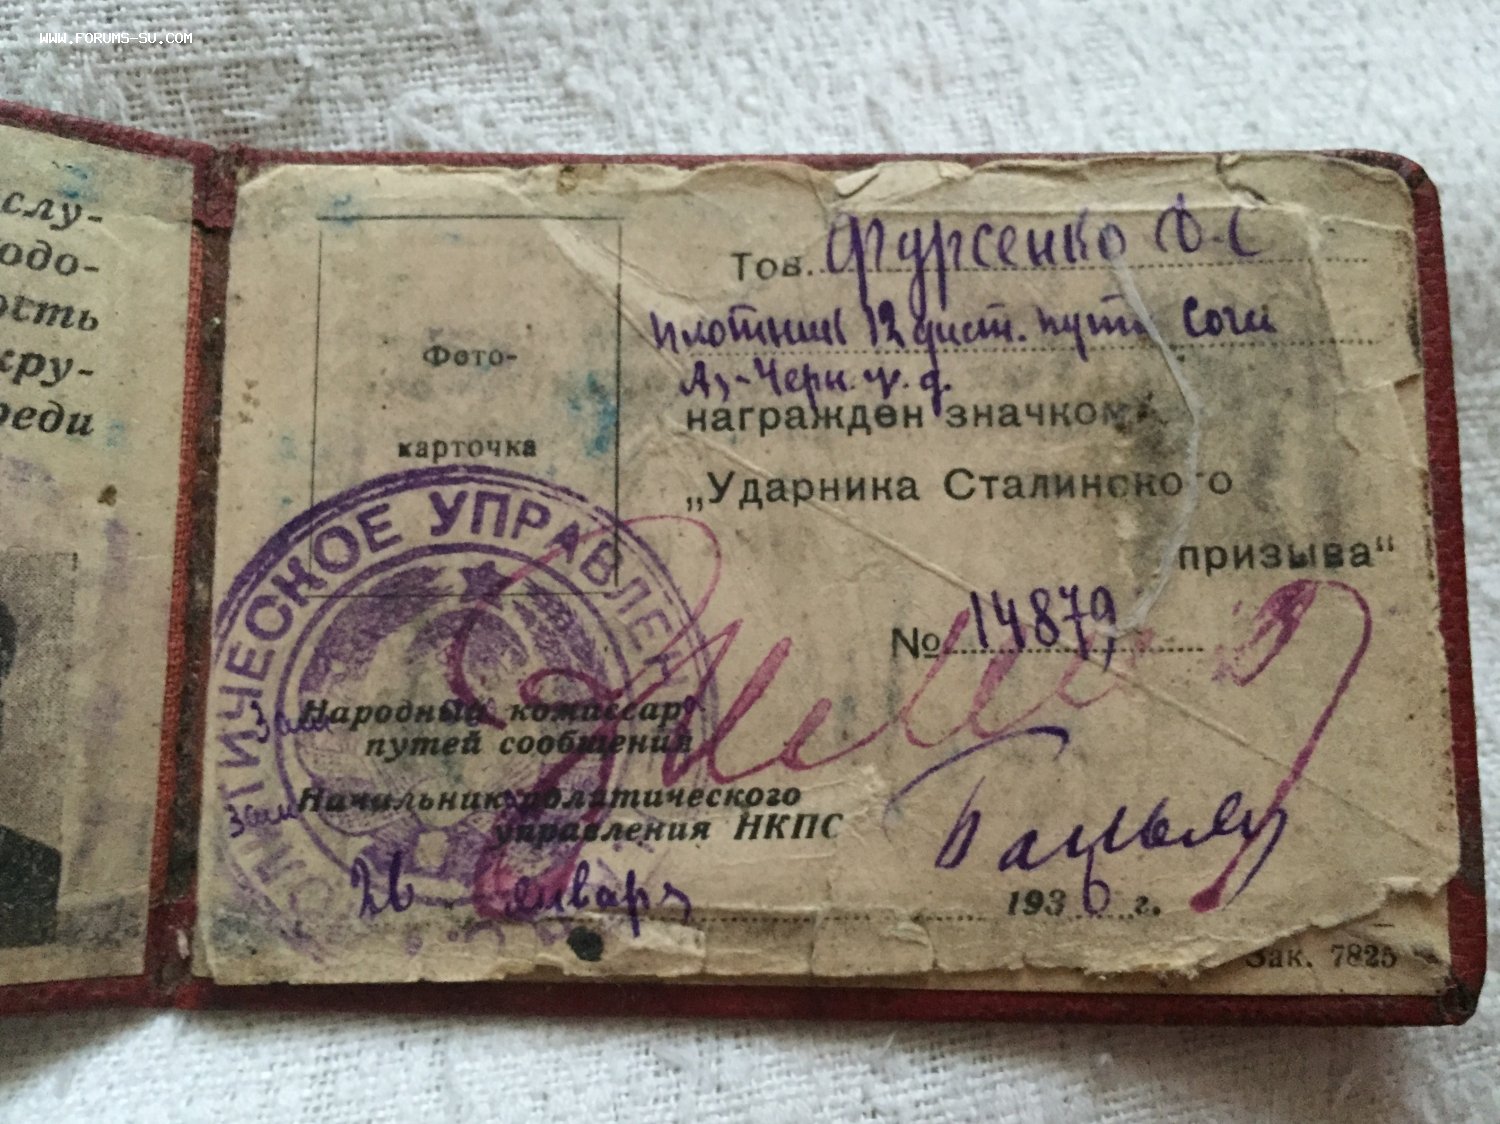 WWW.FORUMS-SU.COM
слу-
одо-
ость
кру-
реди
Тов. Фурсенко Ф.С
плотник 12 дист. пути Сочи
Аз-Черн. ж. д.
награждён значком
„Ударника Сталинского
призыва“
№ 14879
Фото-
карточка
ТИЧЕСКОЕ УПРАВЛЕН
Зам Народный комиссар
путей сообщения
Зам Начальник политического
управления НКПС
26 января 1936 г.
Зак. 7825